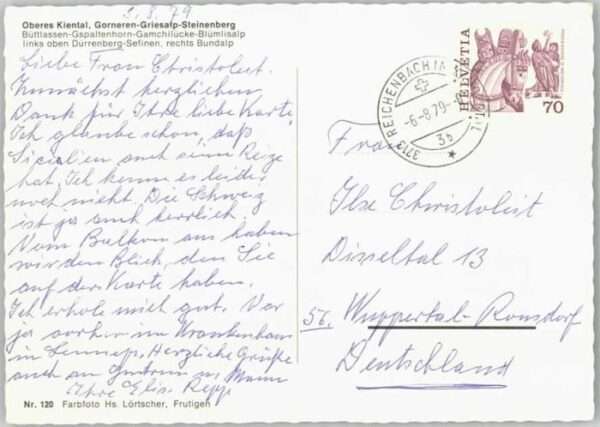 5.8.79
Oberes Kiental, Gorneren-Griesalp-Steinenberg
Büttlassen-Gspaltenhorn-Gamchilücke-Blümlisalp
links oben Dürrenberg-Sefinen, rechts Bundalp
Liebe Frau Christoleit.
Zunächst herzlichen
Dank für Ihre liebe Karte.
Ich glaube schon, daß
Sizilien auch seine Reize
hat, Ich kenne es leider
noch nicht. Die Schweiz
ist ja auch herrlich.
Vom Balkon aus haben
wir den Blick, den Sie
auf der Karte haben.
Ich erhole mich gut. War
ja vorher im Krankenhaus
in Lennep, Herzliche Grüße
auch an Ihren Mann
Ihre Elis.
Nr. 120 Farbfoto Hs. Lörtscher, Frutigen
3713 REICHENBACH IM
-6-8.79-
3b
HELVETIA
70
Frau
Ilse Christoleit
Disseltal 13
56. Wuppertal-Ronsdorf
Deutschland